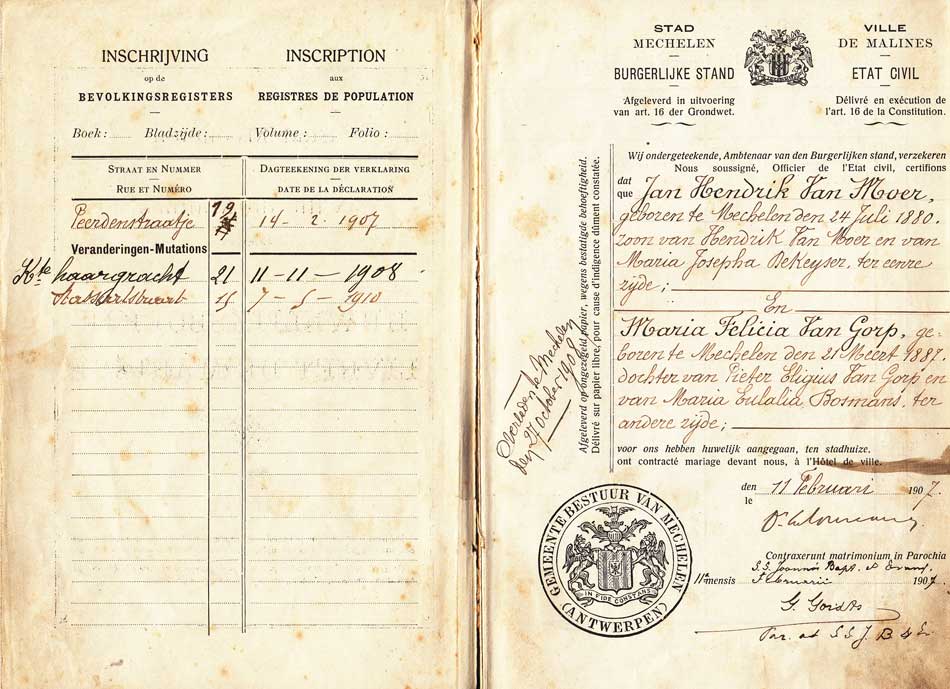 INSCHRIJVING
op de
BEVOLKINGSREGISTERS
Boek: Bladzijde:
INSCRIPTION
aux
REGISTRES DE POPULATION
Volume: Folio:
STRAAT EN NUMMER
RUE ET NUMÉRO
DAGTEEKENING DER VERKLARING
DATE DE LA DÉCLARATION
Peerdenstraatje 19 14 - 2. 1907
Veranderingen-Mutations
Kte haargracht 21 11 - 11 - 1908
15 7 - 5 - 1910
STAD
MECHELEN
BURGERLIJKE STAND
Afgeleverd in uitvoering
van art. 16 der Grondwet.
VILLE
DE MALINES
ETAT CIVIL
Délivré en exécution de
l'art. 16 de la Constitution.
Afgeleverd op ongezegeld papier, wegens bestatigde behoeftigheid.
Délivré sur papier libre, pour cause d'indigence dûment constatée.
Overleden te Mechelen
den 27 october 1908
Wij ondergeteekende, Ambtenaar van den Burgerlijken stand, verzekeren
Nous soussigné, Officier de l'Etat civil, certifions
dat
que Jan Hendrik Van Moer,
geboren te Mechelen den 24 Juli 1880.
zoon van Hendrik Van Moer en van
Maria Josepha DeKeyser, ter eenre
zijde;
En
Maria Felicia Van Gorp, ge-
boren te Mechelen den 21 Meert 1887.
dochter van Pieter Eligius Van Gorp en
van Maria Eulalia Bosmans, ter
andere zijde;
voor ons hebben huwelijk aangegaan, ten stadhuize.
ont contracté mariage devant nous, à l'Hôtel de ville.
den
le 11 Februari 1907.
GEMEENTE BESTUUR VAN MECHELEN
(ANTWERPEN)
IN FIDE CONSTANS
Contraxerunt matrimonium in Parochia
S.S. Joannis Bapt. et Evang.
11a mensis Februarii 1907.